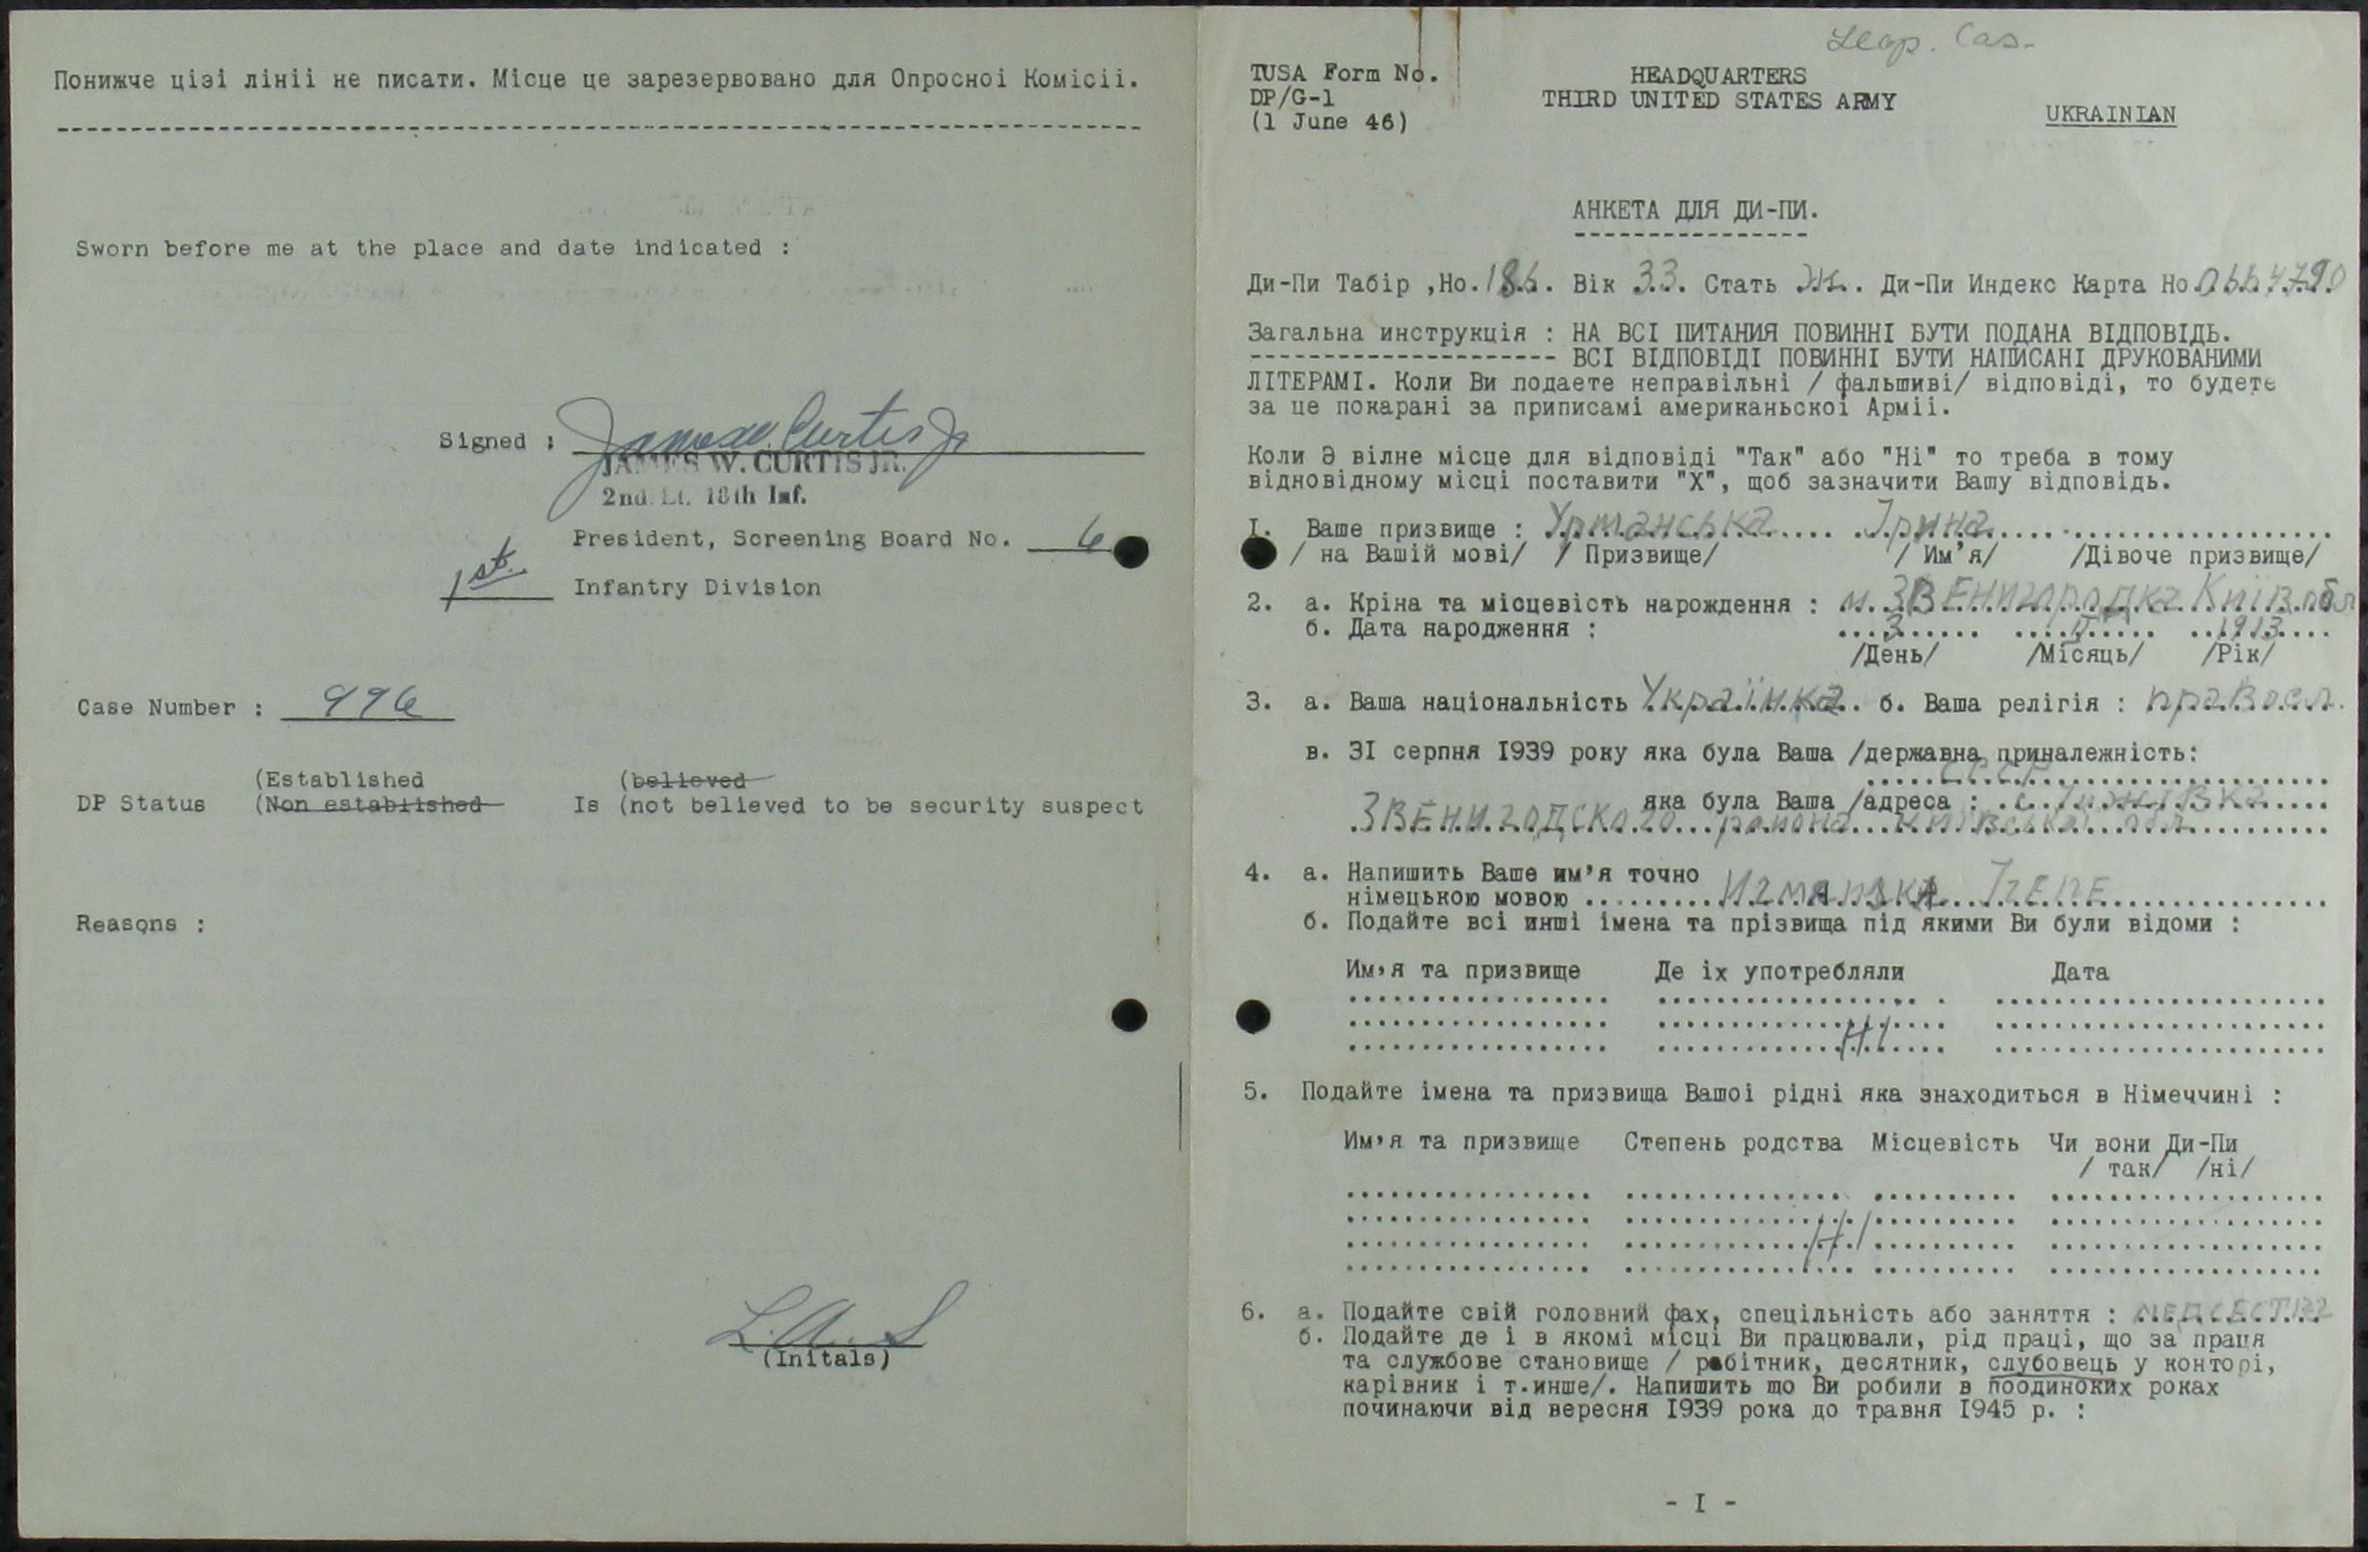 Понижче цізі лініі не писати. Місце це зарезервовано для Опросноі Комісіі.
Sworn before me at the place and date indicated :
Signed : James W. Curtis Jr
JAMES W. CURTIS JR.
2nd. Lt. 18th Inf.
President, Screening Board No. 6
1st. Infantry Division
Case Number : 996
(Established (believed
DP Status (Non established Is (not believed to be security suspect
Reasons :
L.A.S
(Initals)
Leop. Cas.
TUSA Form No. HEADQUARTERS
DP/G-1 THIRD UNITED STATES ARMY
(1 June 46) UKRAINIAN
АНКЕТА ДЛЯ ДИ-ПИ.
Ди-Пи Табір ,Но. 186. Вік 33. Стать Ж. Ди-Пи Индекс Карта Но. 0664790
Загальна инструкція : НА ВСІ ПИТАНИЯ ПОВИННІ БУТИ ПОДАНА ВІДПОВІДЬ.
ВСІ ВІДПОВІДІ ПОВИННІ БУТИ НАПИСАНІ ДРУКОВАНИМИ
ЛІТЕРАМІ. Коли Ви подаете неправільні / фальшиві/ відповіді, то будете
за це покарані за приписамі американьскоі Арміі.
Коли Э вілне місце для відповіді "Так" або "Ні" то треба в тому
відновідному місці поставити "X", щоб зазначити Вашу відповідь.
I. Ваше призвище : Урманська Ірина
/ на Вашій мові/ / Призвище/ / Им’я/ /Дівоче призвище/
2. а. Кріна та місцевість нарождення : м. ЗВЕНИгородка Київ. обл
б. Дата народження : 3 II 1913
/День/ /Місяць/ /Рік/
3. а. Ваша національність Українка б. Ваша релігія : правосл.
в. 3I серпня I939 року яка була Ваша /державна приналежність:
С.С.С.Р.
яка була Ваша /адреса : с.
ЗВЕНИгодского района Київської обл
4. а. Напишить Ваше им’я точно
німецькою мовою Irene
б. Подайте всі инші імена та прізвища під якими Ви були відоми :
Им,я та призвище Де іх употребляли Дата
НІ
5. Подайте імена та призвища Вашоі рідні яка знаходиться в Німеччині :
Им,я та призвище Степень родства Місцевість Чи вони Ди-Пи
/ так/ /ні/
НІ
6. а. Подайте свій головний фах, спецільність або заняття : МЕДСЕСТРА
б. Подайте де і в якомі місці Ви працювали, рід праці, що за праця
та службове становище / робітник, десятник, слубовець у конторі,
карівник і т.инше/. Напишить що Ви робили в поодиноких роках
починаючи від вересня I939 рока до травня I945 р. :
- I -